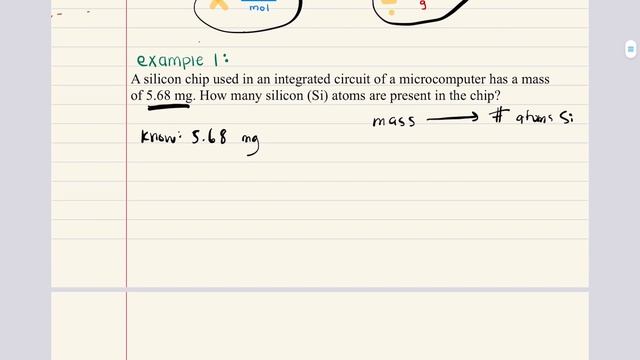 mol
g
example 1:
A silicon chip used in an integrated circuit of a microcomputer has a mass
of 5.68 mg. How many silicon (Si) atoms are present in the chip?
mass → # atoms Si
Know: 5.68 mg